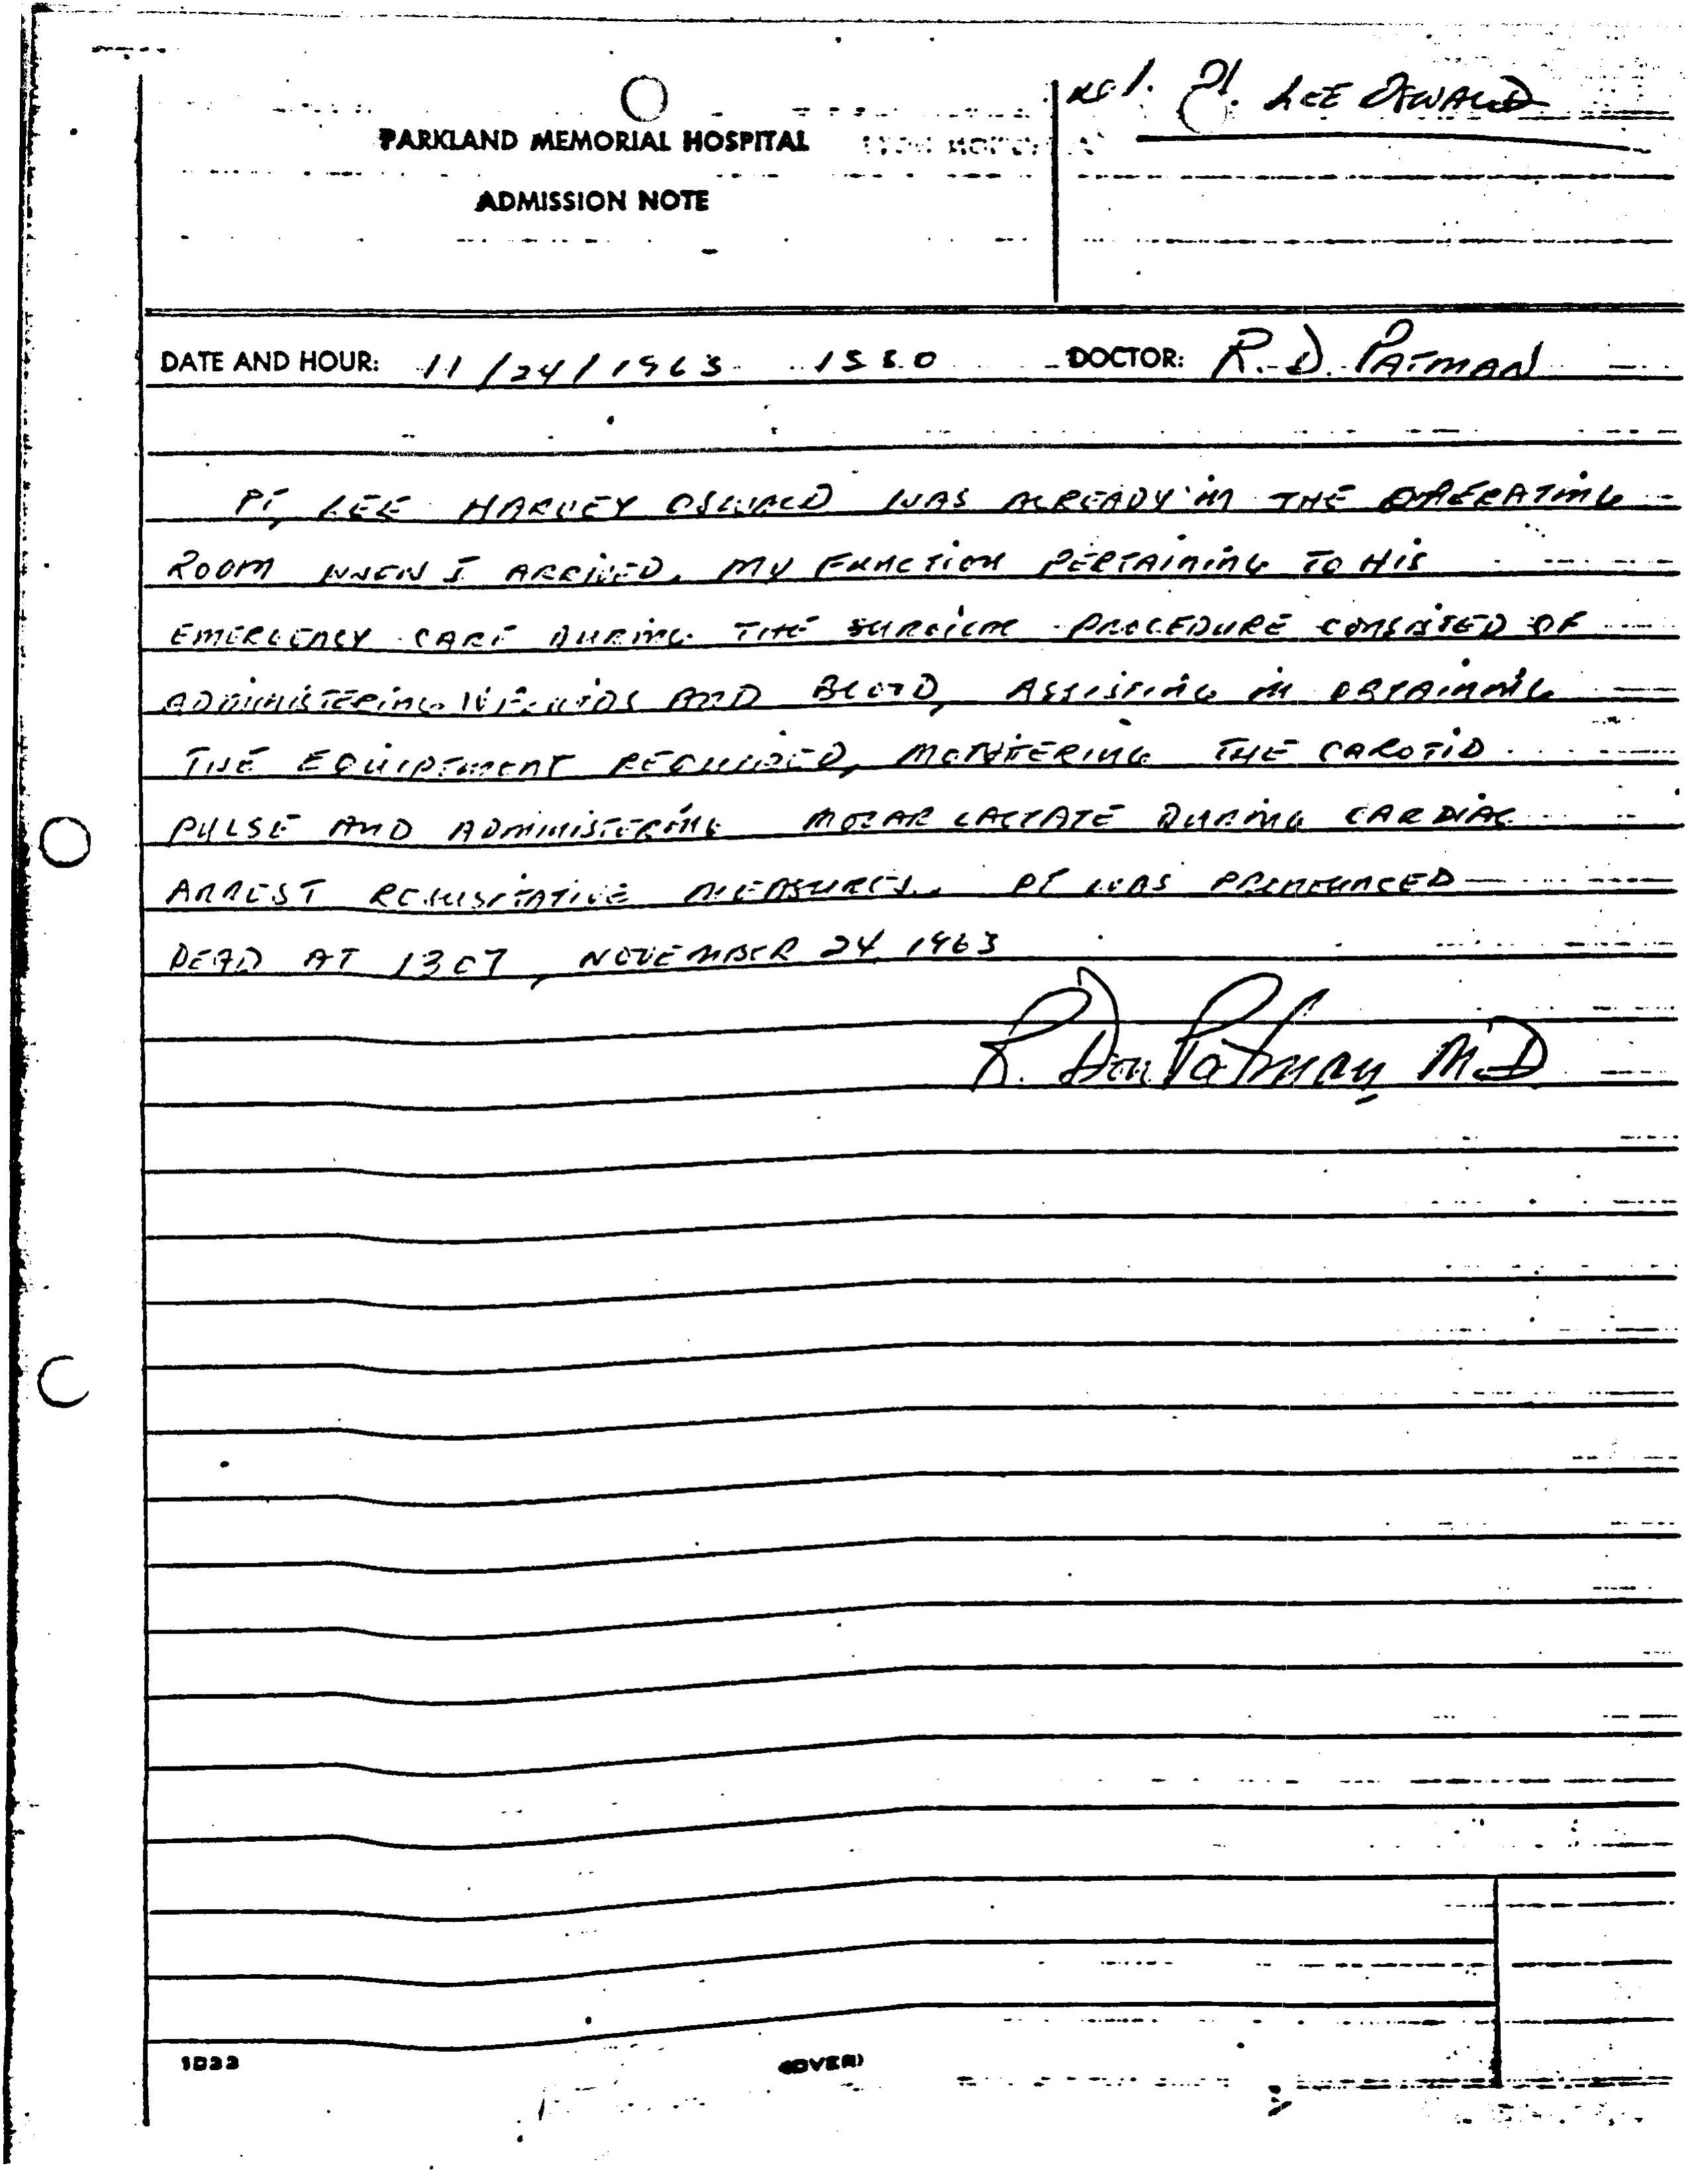 LEE OSWALD
PARKLAND MEMORIAL HOSPITAL
ADMISSION NOTE
DATE AND HOUR: 11/24/1963 DOCTOR: R. D. PATMAN
PT, LEE HARVEY OSWALD WAS ALREADY IN THE OPERATING
ROOM WHEN I ARRIVED. MY FUNCTION PERTAINING TO HIS
EMERGENCY CARE DURING THE SURGICAL PROCEDURE CONSISTED OF
ADMINISTERING IV FLUIDS AND BLOOD, ASSISTING IN OBTAINING
THE EQUIPEMENT REQUIRED, MONITERING THE CAROTID
PULSE AND ADMINISTERING MOLAR LACTATE DURING CARDIAC
ARREST RESUSITATIVE MEASURES. PT WAS PRONOUNCED
DEAD AT 1307, NOVEMBER 24, 1963
R. Don Patman M.D
1033
(OVER)